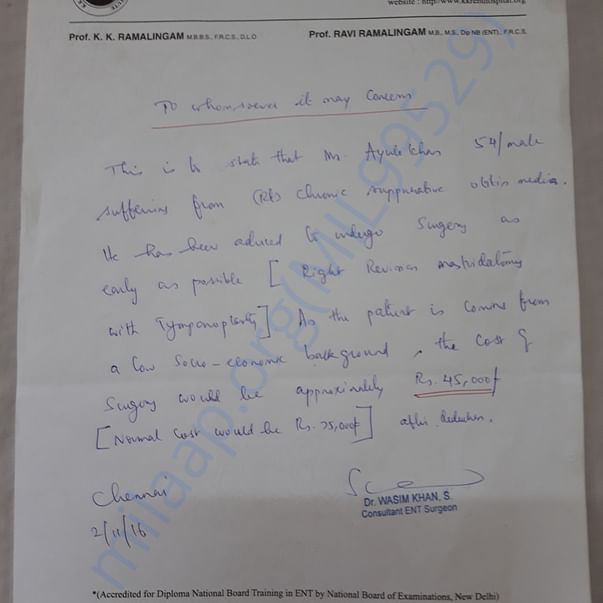 website : http://www.kkrenthospital.org
Prof. K. K. RAMALINGAM M.B.B.S., F.R.C.S., D.L.O
Prof. RAVI RAMALINGAM M.B., M.S., Dip NB (ENT)., F.R.C.S.
To whomsoever it may Concern
This is to state that Mr. Ayub khan 54/male
suffering from (Rt) Chronic suppurative otitis media.
He has been adviced to undergo Surgery as
early as possible [Right Revision mastoidectomy
with Tympanoplasty] As the patient is coming from
a low Socio-economic background, the cost of
Surgery would be approximately Rs. 45,000/-
[Normal Cost would be Rs. 75,000/-] after deduction.
Chennai
2/11/16
Dr. WASIM KHAN. S.
Consultant ENT Surgeon
*(Accredited for Diploma National Board Training in ENT by National Board of Examinations, New Delhi)
milaap.org(MIL99529)